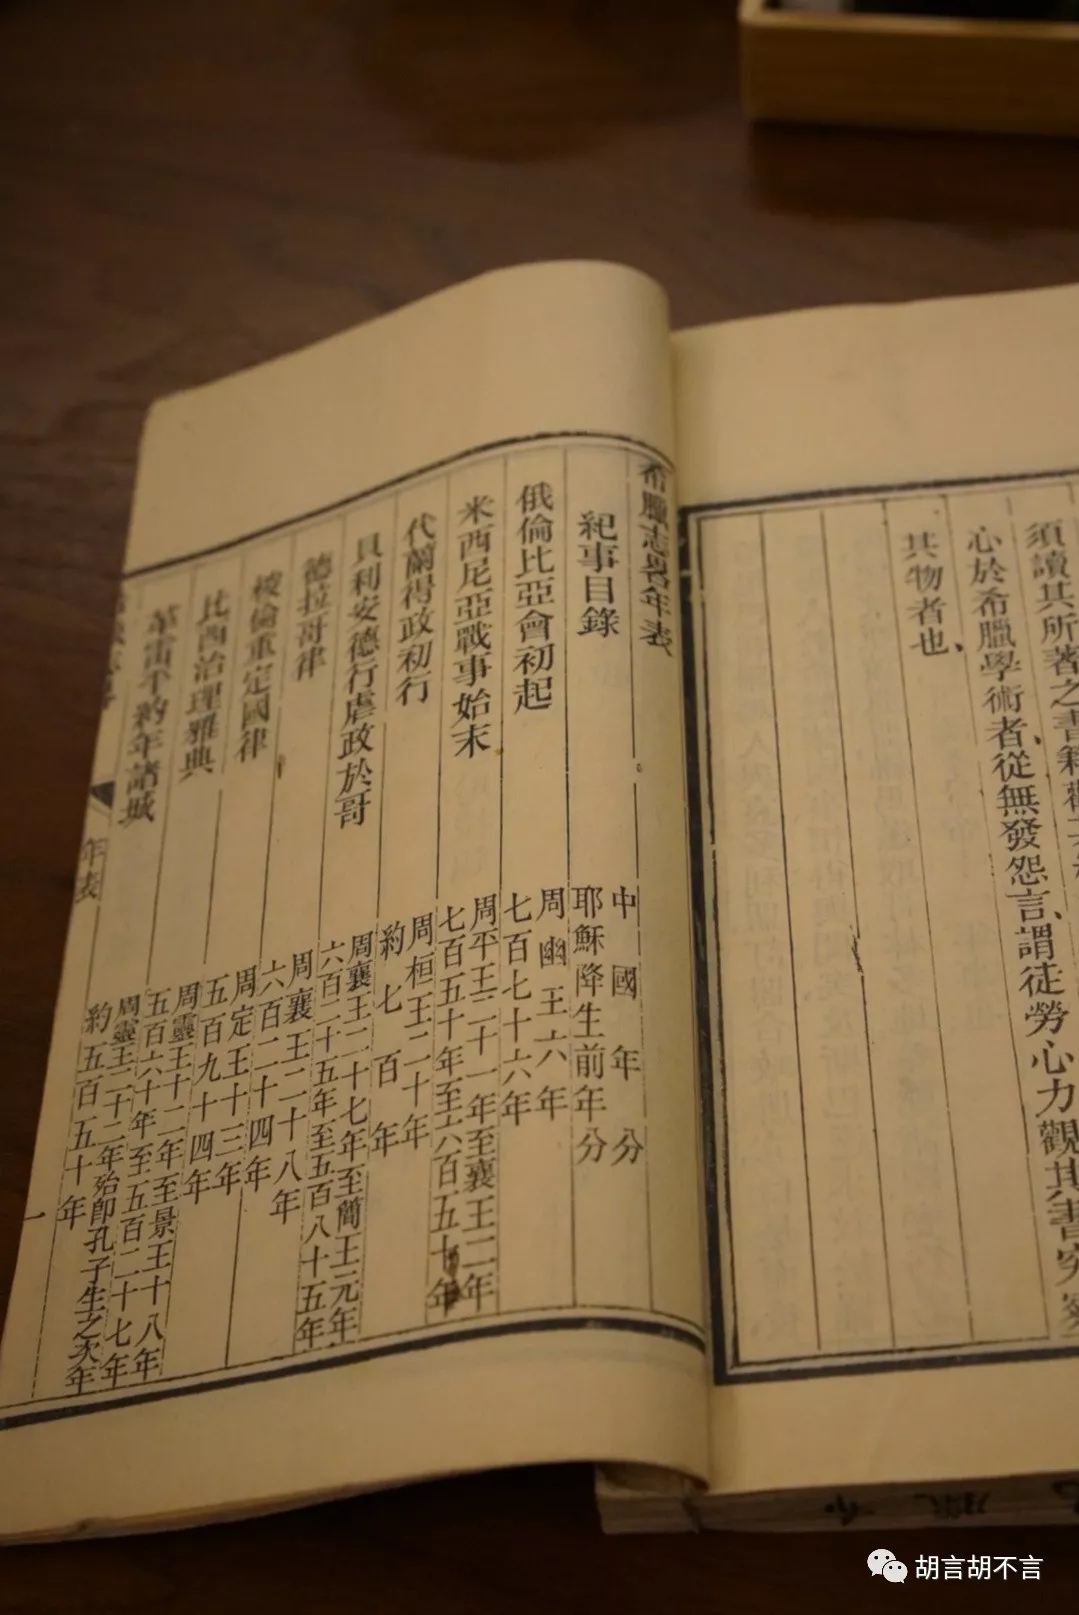 須讀其所著之書籍
心於希臘學術者、從無發怨言、謂徒勞心力、觀其書宛
其物者也、
希臘志畧年表
紀事目錄
中國年分
耶穌降生前年分
俄倫比亞會初起
周幽王六年
七百七十六年
米西尼亞戰事始末
周平王二十一年至襄王二年
七百五十年至六百五十年
代蘭得政初行
周桓王二十年
約七百年
貝利安德行虐政於哥
周襄王二十七年至簡王元年
六百二十五年至五百八十五年
德拉哥律
周襄王二十八年
六百二十四年
梭倫重定國律
周定王十三年
五百九十四年
比西治理雅典
周靈王十二年至景王十八年
五百六十年至五百二十七年
革雷千約年諸城
周靈王二十二年殆即孔子生之次年
約五百五十年
年表
一
胡言胡不言